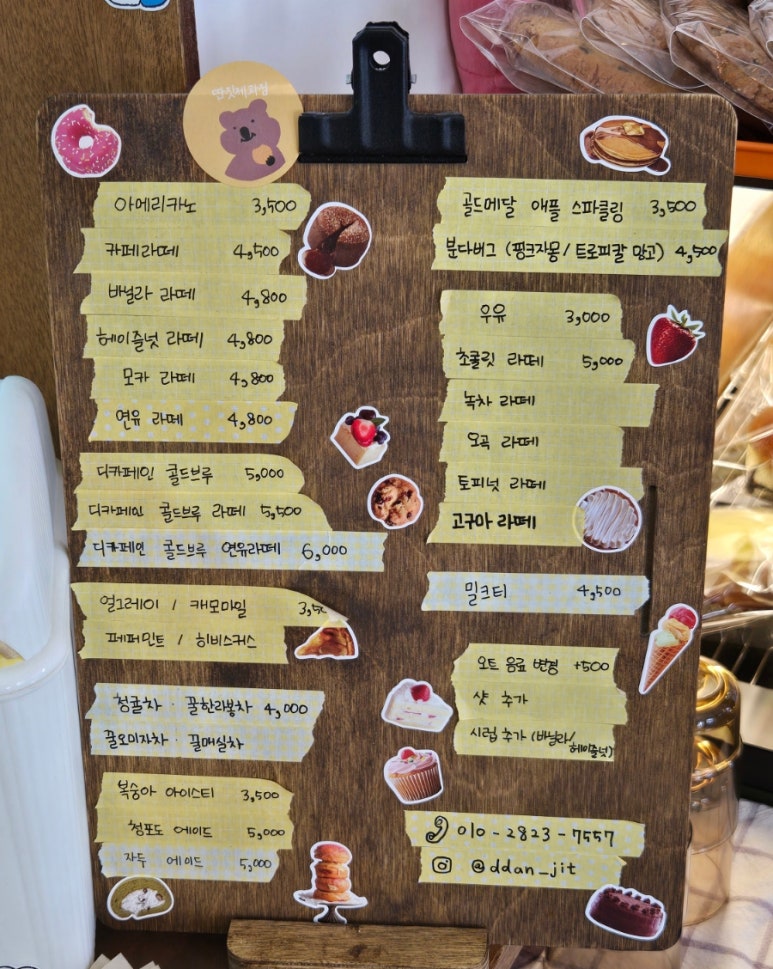 딴짓제과점
아메리카노 3,500
카페라떼 4,500
바닐라 라떼 4,800
헤이즐넛 라떼 4,800
모카 라떼 4,800
연유 라떼 4,800
디카페인 콜드브루 5,000
디카페인 콜드브루 라떼 5,500
디카페인 콜드브루 연유라떼 6,000
얼그레이 / 캐모마일 3,5
페퍼민트 / 히비스커스
청귤차 · 꿀한라봉차 4,000
꿀오미자차 · 꿀매실차
복숭아 아이스티 3,500
청포도 에이드 5,000
자두 에이드 5,000
골드메달 애플 스파클링 3,500
분다버그 (핑크자몽 / 트로피칼 망고) 4,500
우유 3,000
초콜릿 라떼 5,000
녹차 라떼
오곡 라떼
토피넛 라떼
고구마 라떼
밀크티 4,500
오트 음료 변경 +500
샷 추가
시럽 추가 (바닐라/
헤이즐넛)
010-2823-7557
@ddan_jit